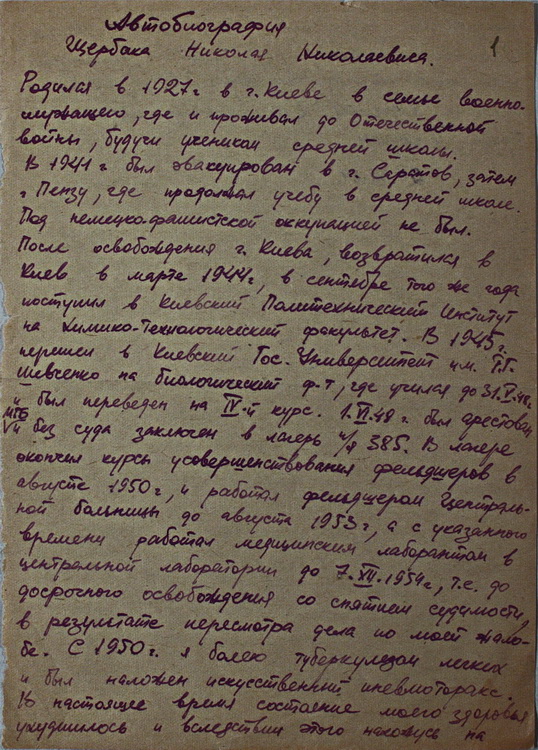 Автобиография
Щербака Николая Николаевича.
1
Родился в 1927г в г. Киеве в семье военно-
служащего, где и проживал до Отечественной
войны, будучи учеником средней школы.
В 1941 г был эвакуирован в г. Саратов, затем
г. Пензу, где продолжал учебу в средней школе.
Под немецко-фашистской оккупацией не был.
После освобождения г. Киева, возвратился в
Киев в марте 1944г, в сентябре того же года
поступил в Киевский Политехнический Институт
на Химико-Технологический факультет. В 1945г.
перешел в Киевский Гос. Университет им. Т.Г.
Шевченко на биологический ф-т, где учился до 31.V.48г.
и был переведен на IV-й курс. 1.VI.48 г. был арестован
МГБ
и без суда заключен в лагерь п/я 385. В лагере
окончил курсы усовершенствования фельдшеров в
августе 1950г, и работал фельдшером Централь-
ной больницы до августа 1953г, а с указанного
времени работал медицинским лаборантом в
центральной лаборатории до 7.XII.1954г, т.е. до
досрочного освобождения со снятием судимости,
в результате пересмотра дела по моей жало-
бе. С 1950г. я болею туберкулезом легких
и был наложен искусственный пневмоторакс.
В настоящее время состояние моего здоровья
ухудшилось и вследствии этого нахожусь на